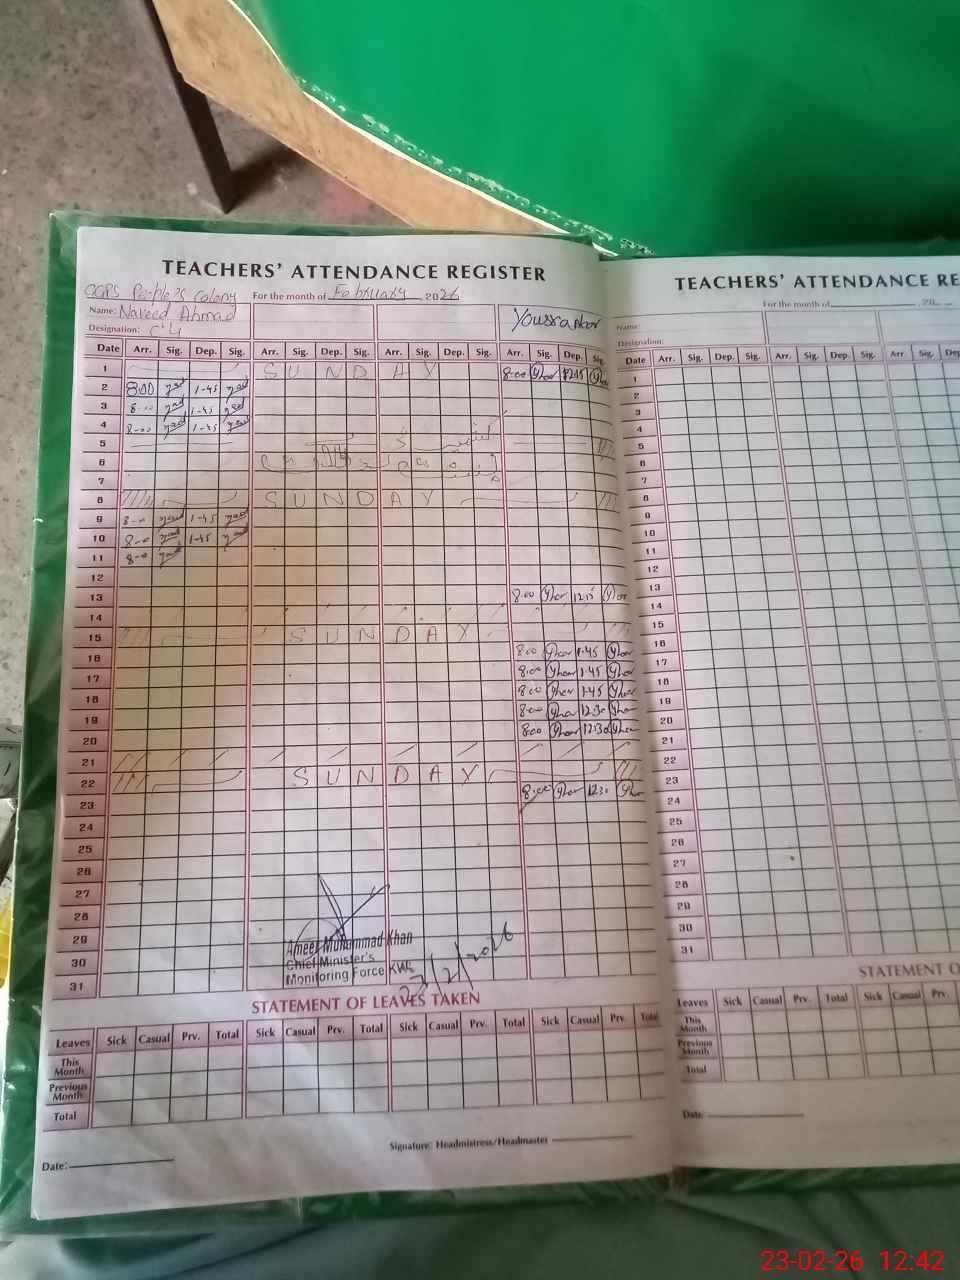 TEACHERS' ATTENDANCE REGISTER
For the month of February, 2026
Name: Naveed Ahmad
Designation:
Date Arr. Sig. Dep. Sig. Arr. Sig. Dep. Sig. Arr. Sig. Dep. Sig. Arr. Sig. Dep. Sig.
1 SUNDAY 8:00 12:15
2 8:00 1-45
3 8-00 1-45
4 8-00 1-45
5
6
7
8 SUNDAY
9 8-00 1-45
10 8-00 1-45
11 8-00
12
13 8:00 12:15
14
15 SUNDAY
16 8:00 1:45
17 8:00 1:45
18 8:00 1:45
19 8:00 12:30
20 8:00 12:30
21
22 SUNDAY
23 8:00 12:30
24
25
26
27
28
29
30
31
Ameer Muhammad Khan
Chief Minister's
Monitoring Force KWL
STATEMENT OF LEAVES TAKEN
Leaves Sick Casual Prv. Total Sick Casual Prv. Total Sick Casual Prv. Total Sick Casual Prv. Total
This Month
Previous Month
Total
Signature: Headmistress/Headmaster
Date:
TEACHERS' ATTENDANCE RE
For the month of , 20
Name:
Designation:
Date Arr. Sig. Dep. Sig. Arr. Sig. Dep. Sig. Arr. Sig. Dep
1
2
3
4
5
6
7
8
9
10
11
12
13
14
15
16
17
18
19
20
21
22
23
24
25
26
27
28
29
30
31
STATEMENT O
Leaves Sick Casual Prv. Total Sick Casual Prv. Total
This Month
Previous Month
Total
Date:
23-02-26 12:42